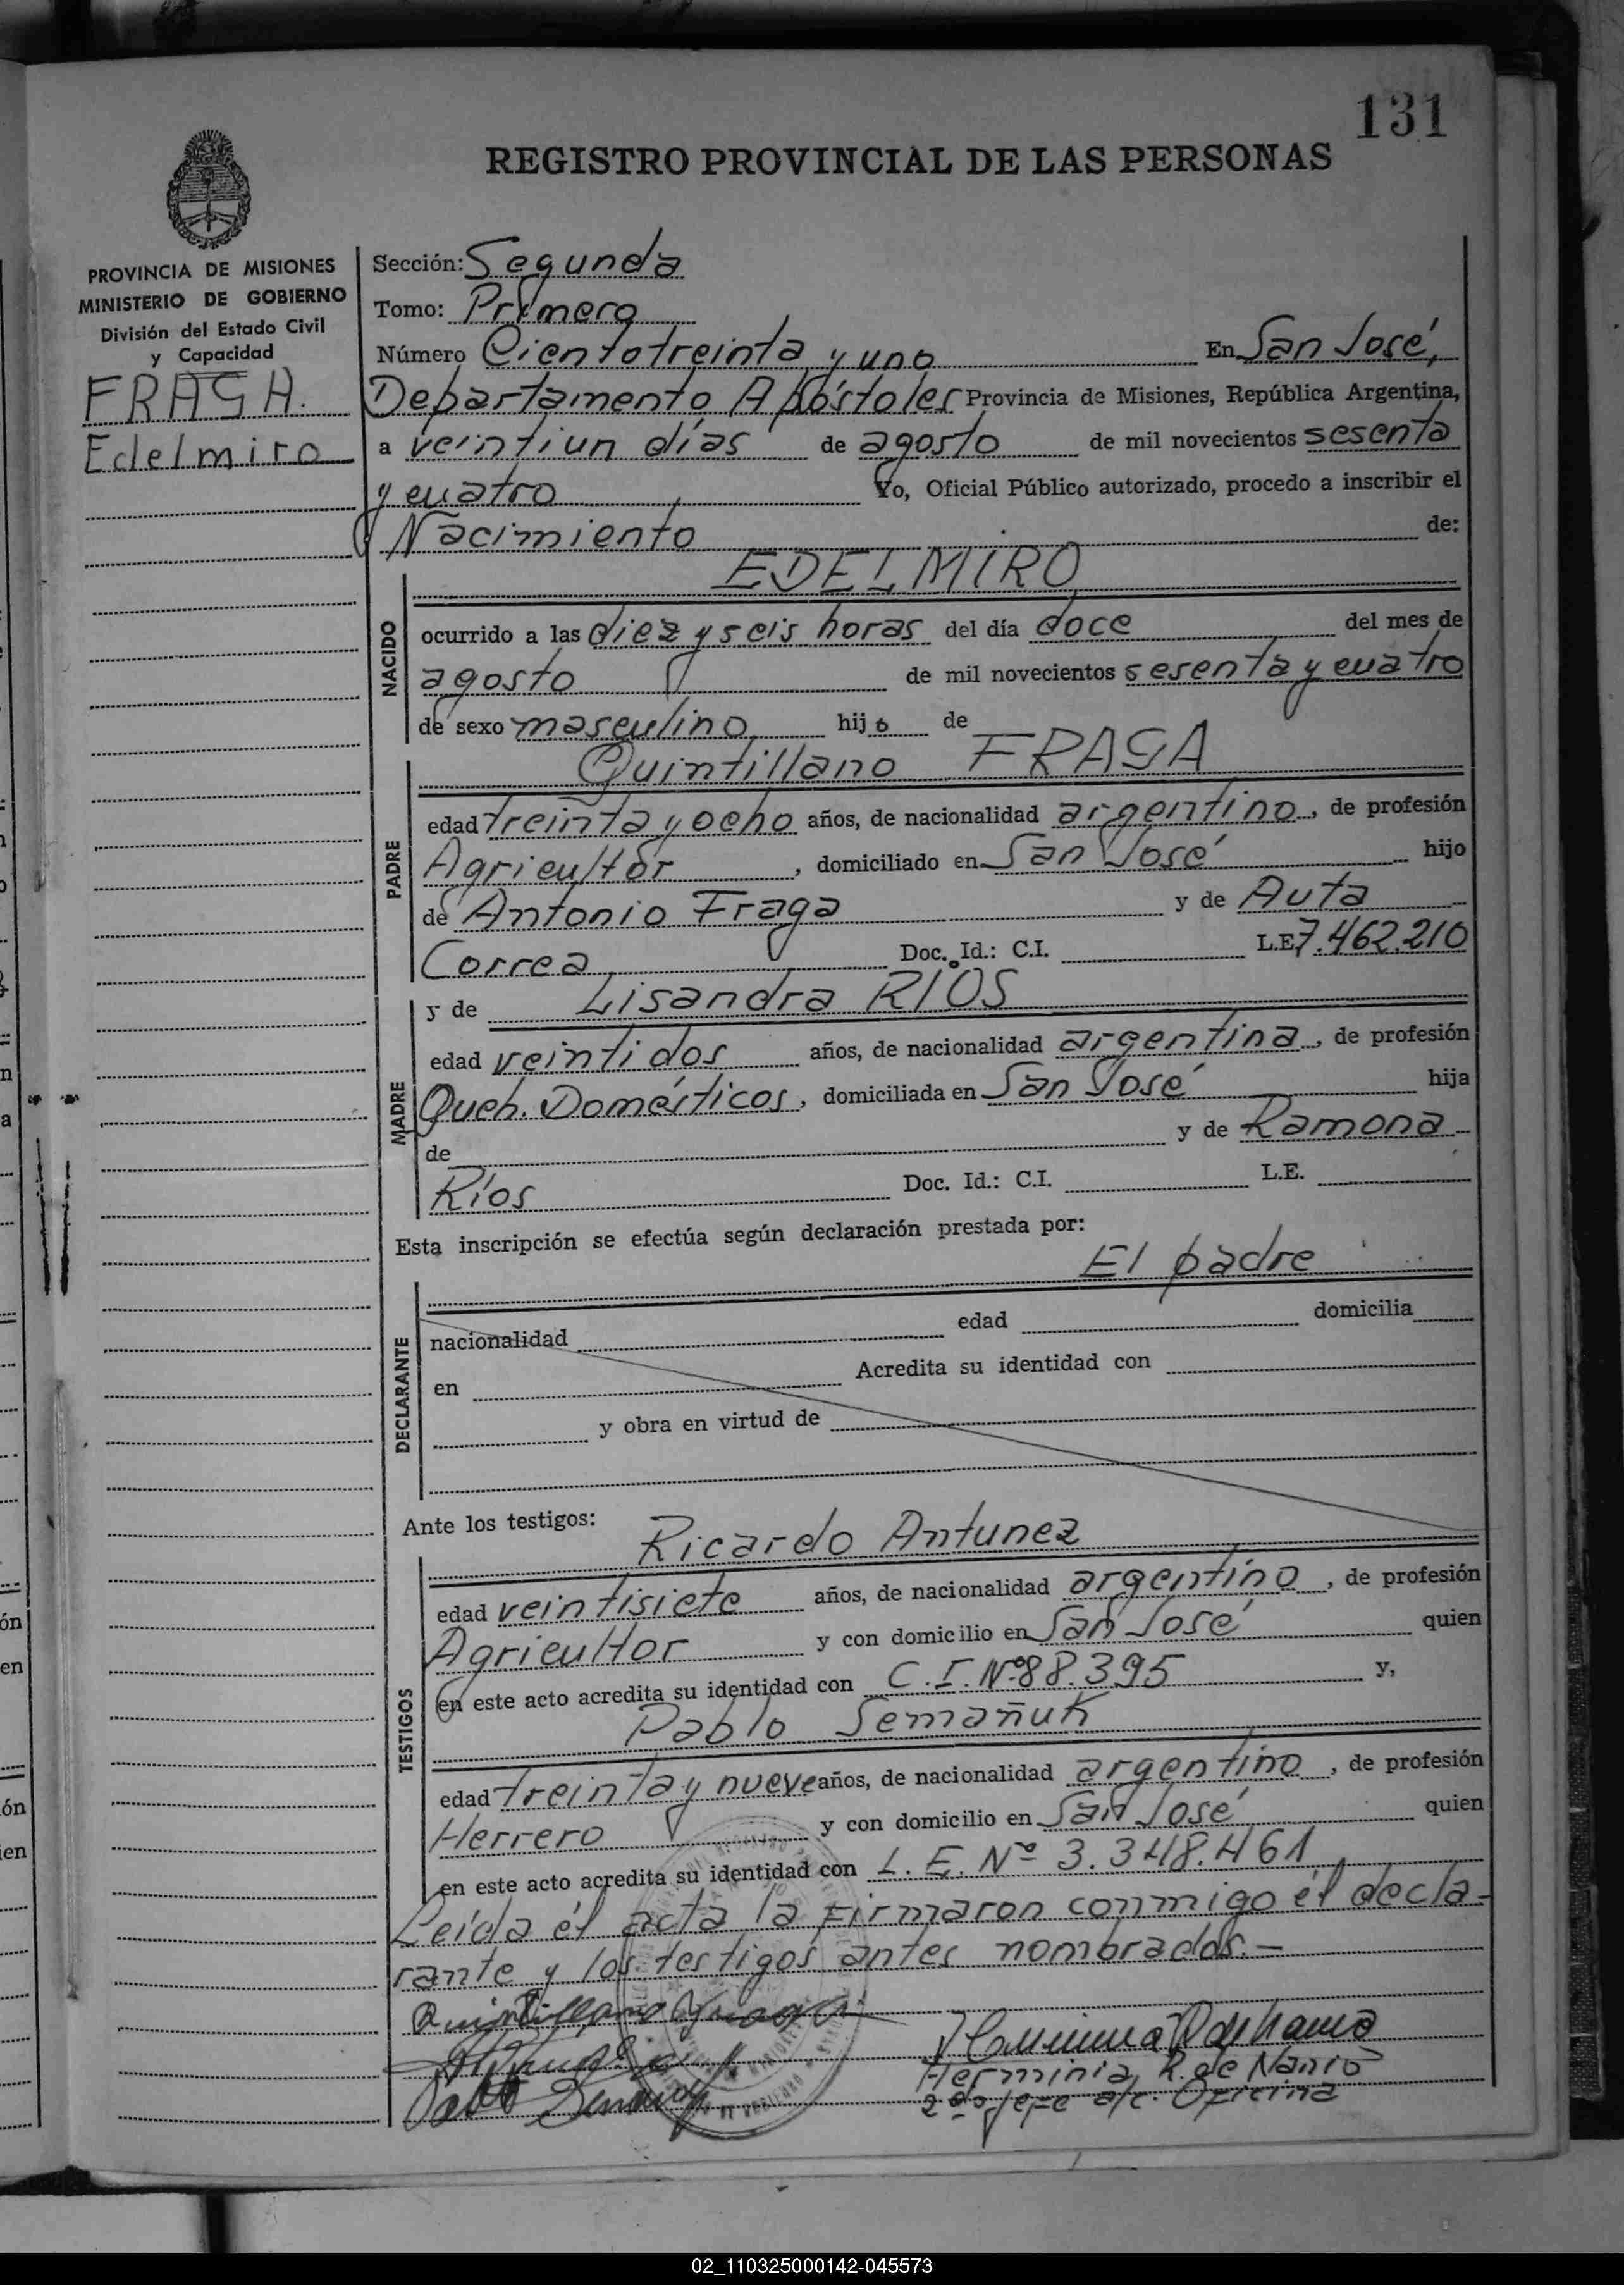 131
REGISTRO PROVINCIAL DE LAS PERSONAS
PROVINCIA DE MISIONES
MINISTERIO DE GOBIERNO
División del Estado Civil
y Capacidad
FRAGA.
Edelmiro
Sección: Segunda
Tomo: Primero
Número Ciento treinta y uno En San José,
Departamento Apóstoles Provincia de Misiones, República Argentina,
a veintiun días de agosto de mil novecientos sesenta
y cuatro Yo, Oficial Público autorizado, procedo a inscribir el
Nacimiento de:
EDELMIRO
NACIDO
ocurrido a las diez y seis horas del día doce del mes de
agosto de mil novecientos sesenta y cuatro
de sexo masculino hijo de
PADRE
Quintillano FRAGA
edad treinta y ocho años, de nacionalidad argentino, de profesión
Agricultor, domiciliado en San José hijo
de Antonio Fraga y de Auta
Correa Doc. Id.: C.I. L.E 7.462.210
MADRE
y de Lisandra RIOS
edad veintidos años, de nacionalidad argentina, de profesión
Queh. Domésticos, domiciliada en San José hija
de y de Ramona
Ríos Doc. Id.: C.I. L.E.
Esta inscripción se efectúa según declaración prestada por:
El padre
DECLARANTE
nacionalidad edad domicilia
en Acredita su identidad con
y obra en virtud de
Ante los testigos:
TESTIGOS
Ricardo Antunez
edad veintisiete años, de nacionalidad argentino, de profesión
Agricultor y con domicilio en San José quien
en este acto acredita su identidad con C.I. Nº 88.395 y,
Pablo Semañuk
edad treinta y nueve años, de nacionalidad argentino, de profesión
Herrero y con domicilio en San José quien
en este acto acredita su identidad con L.E. Nº 3.348.461
Leída él acta la firmaron conmigo él decla-
rante y los testigos antes nombrados.—
Quintillano Fraga
Herminia R. de Nanio
2do Jefe a/c. Oficina
02_110325000142-045573